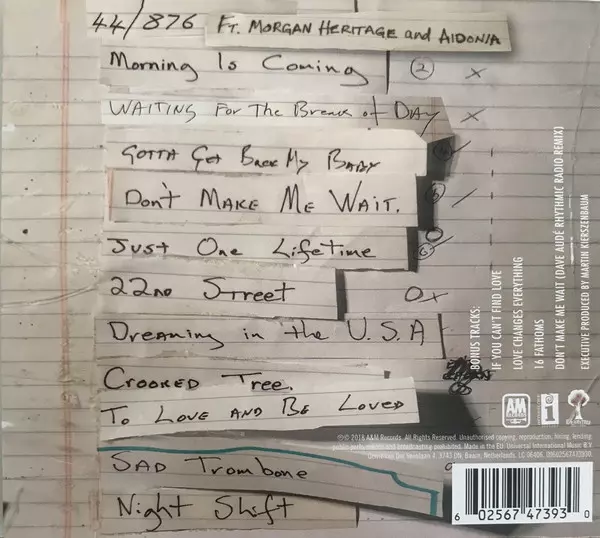 44/876 Ft. MORGAN HERITAGE and AIDONIA
Morning Is Coming
2 x
WAITING For The Break of DAY x
GOTTA Get Back My BABY
Don't MAKE ME WAIT.
Just One Lifetime
22ND Street
0x
Dreaming in the U.S.A
CROOKED Tree.
To LOVE AND BE LOVED
SAD Trombone
Night Shift
BONUS TRACKS:
IF YOU CAN'T FIND LOVE
LOVE CHANGES EVERYTHING
16 FATHOMS
DON'T MAKE ME WAIT (DAVE AUDE RHYTHMIC RADIO REMIX)
EXECUTIVE PRODUCED BY MARTIN KIERSZENBAUM
A&M RECORDS
i
℗© 2018 A&M Records. All Rights Reserved. Unauthorised copying, reproduction, hiring, lending,
public performance and broadcasting prohibited. Made in the EU. Universal International Music B.V.
6 02567 47393 0